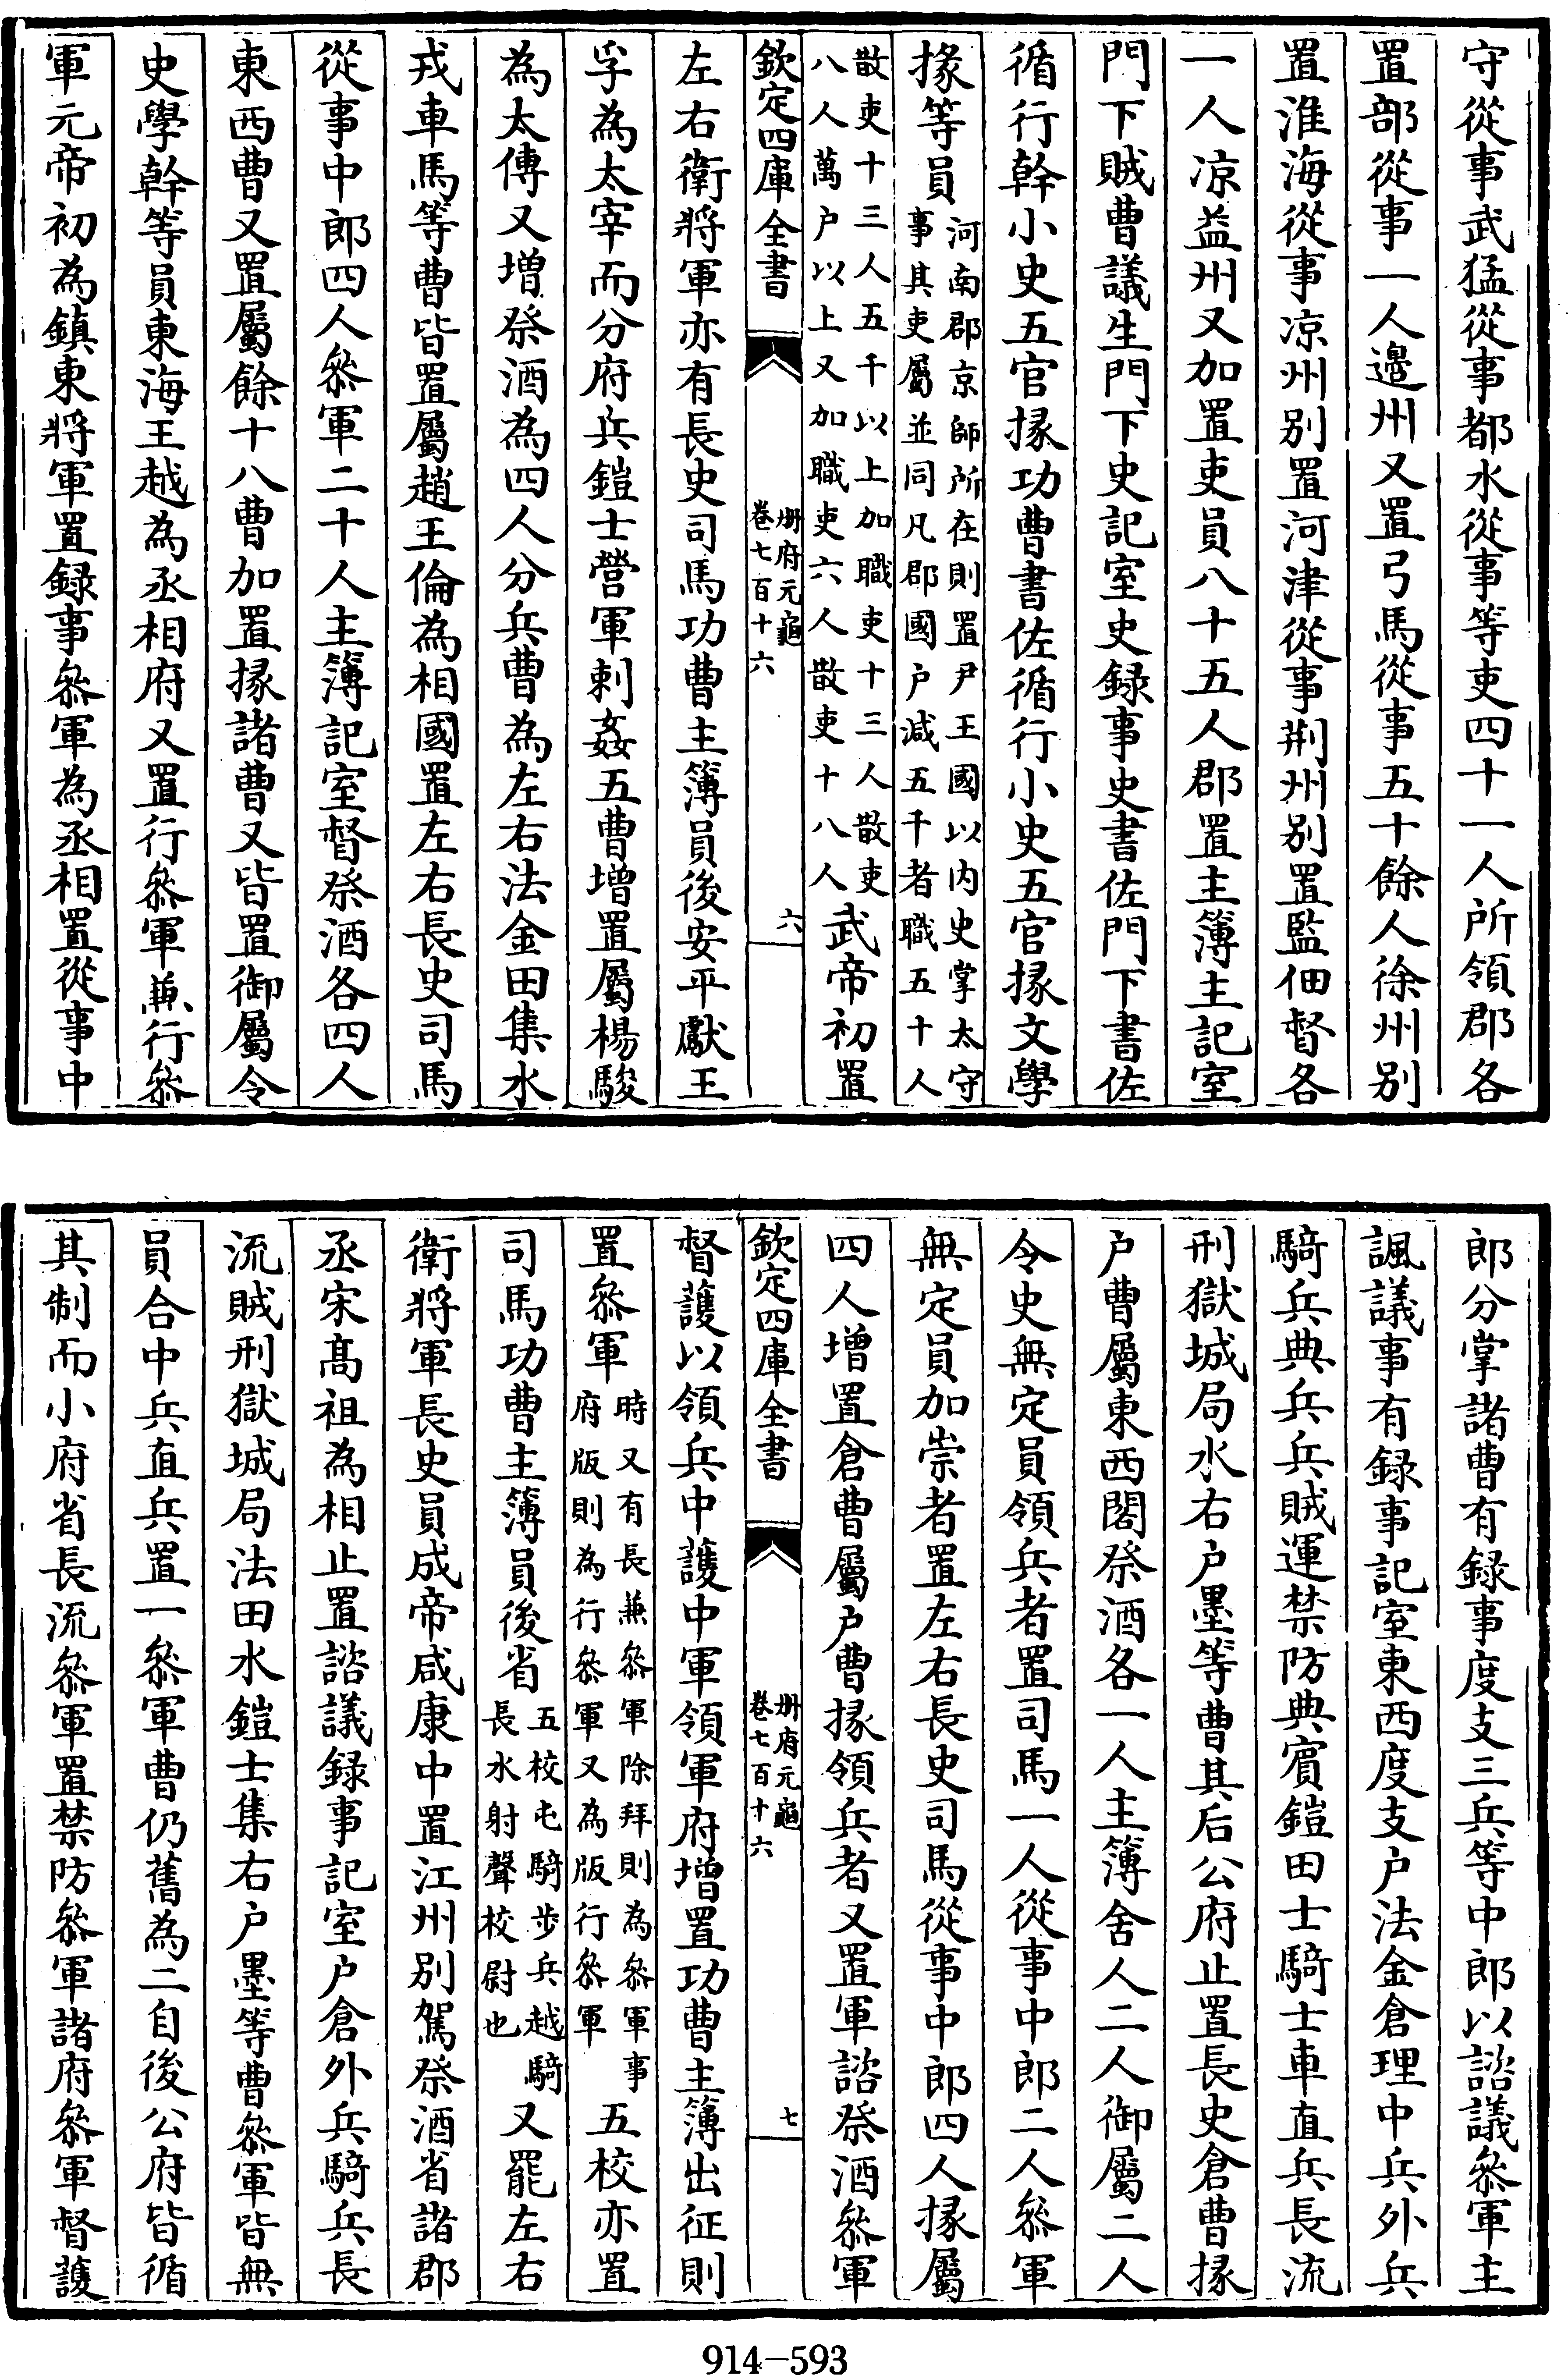 守從事武猛從事都水從事等吏四十一人所領郡各
置部從事一人邊州又置弓馬從事五十餘人徐州别
置淮海從事凉州别置河津從事荆州别置監佃督各
一人凉益州又加置吏員八十五人郡置主簿主記室
門下賊曹議生門下史記室史録事史書佐門下書佐
循行幹小史五官掾功曹書佐循行小史五官掾文學
掾等員河南郡京師所在則置尹王國以内史掌太守
事其吏屬並同凡郡國户減五千者職五十人
散吏十三人五千以上加職吏十三人散吏
八人萬户以上又加職吏六人散吏十八人武帝初置
欽定四庫全書
册府元龜
卷七百十六
六
左右衛將軍亦有長史司馬功曹主簿員後安平獻王
孚為太宰而分府兵鎧士營軍刺姦五曹增置屬楊駿
為太傅又增祭酒為四人分兵曹為左右法金田集水
戎車馬等曹皆置屬趙王倫為相國置左右長史司馬
從事中郎四人叅軍二十人主簿記室督祭酒各四人
東西曹又置屬餘十八曹加置掾諸曹又皆置御屬令
史學幹等員東海王越為丞相府又置行叅軍兼行叅
軍元帝初為鎮東將軍置録事叅軍為丞相置從事中
郎分掌諸曹有録事度支三兵等中郎以諮議叅軍主
諷議事有録事記室東西度支户法金倉理中兵外兵
騎兵典兵兵賊運禁防典賓鎧田士騎士車直兵長流
刑獄城局水右户墨等曹其后公府止置長史倉曹掾
户曹屬東西閤祭酒各一人主簿舍人二人御屬二人
令史無定員領兵者置司馬一人從事中郎二人叅軍
無定員加崇者置左右長史司馬從事中郎四人掾屬
四人增置倉曹屬户曹掾領兵者又置軍諮祭酒叅軍
欽定四庫全書
册府元龜
卷七百十六
七
督護以領兵中護中軍領軍府增置功曹主簿出征則
置叅軍時又有長兼叅軍除拜則為叅軍事
府版則為行叅軍又為版行叅軍五校亦置
司馬功曹主簿員後省五校屯騎步兵越騎
長水射聲校尉也又罷左右
衛將軍長史員成帝咸康中置江州别駕祭酒省諸郡
丞宋髙祖為相止置諮議録事記室户倉外兵騎兵長
流賊刑獄城局法田水鎧士集右户墨等曹叅軍皆無
員合中兵直兵置一叅軍曹仍舊為二自後公府皆循
其制而小府省長流叅軍置禁防叅軍諸府叅軍督護
914-593